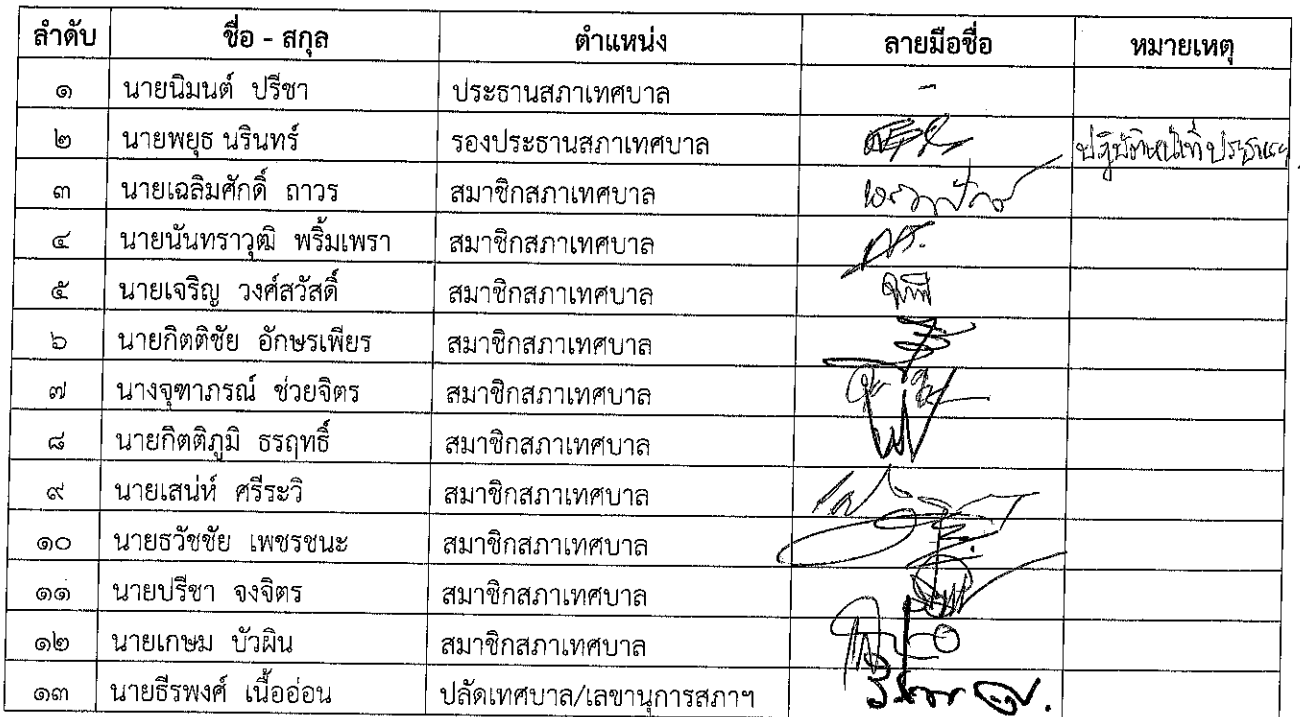 ลำดับ ชื่อ - สกุล ตำแหน่ง ลายมือชื่อ หมายเหตุ
๑ นายนิมนต์ ปรีชา ประธานสภาเทศบาล -
๒ นายพยุธ นรินทร์ รองประธานสภาเทศบาล ปฏิบัติหน้าที่ประธานฯ
๓ นายเฉลิมศักดิ์ ถาวร สมาชิกสภาเทศบาล
๔ นายนันทราวุฒิ พริ้มเพรา สมาชิกสภาเทศบาล
๕ นายเจริญ วงศ์สวัสดิ์ สมาชิกสภาเทศบาล
๖ นายกิตติชัย อักษรเพียร สมาชิกสภาเทศบาล
๗ นางจุฑาภรณ์ ช่วยจิตร สมาชิกสภาเทศบาล
๘ นายกิตติภูมิ ธรฤทธิ์ สมาชิกสภาเทศบาล
๙ นายเสน่ห์ ศรีระวิ สมาชิกสภาเทศบาล
๑๐ นายธวัชชัย เพชรชนะ สมาชิกสภาเทศบาล
๑๑ นายปรีชา จงจิตร สมาชิกสภาเทศบาล
๑๒ นายเกษม บัวผิน สมาชิกสภาเทศบาล
๑๓ นายธีรพงศ์ เนื้ออ่อน ปลัดเทศบาล/เลขานุการสภาฯ